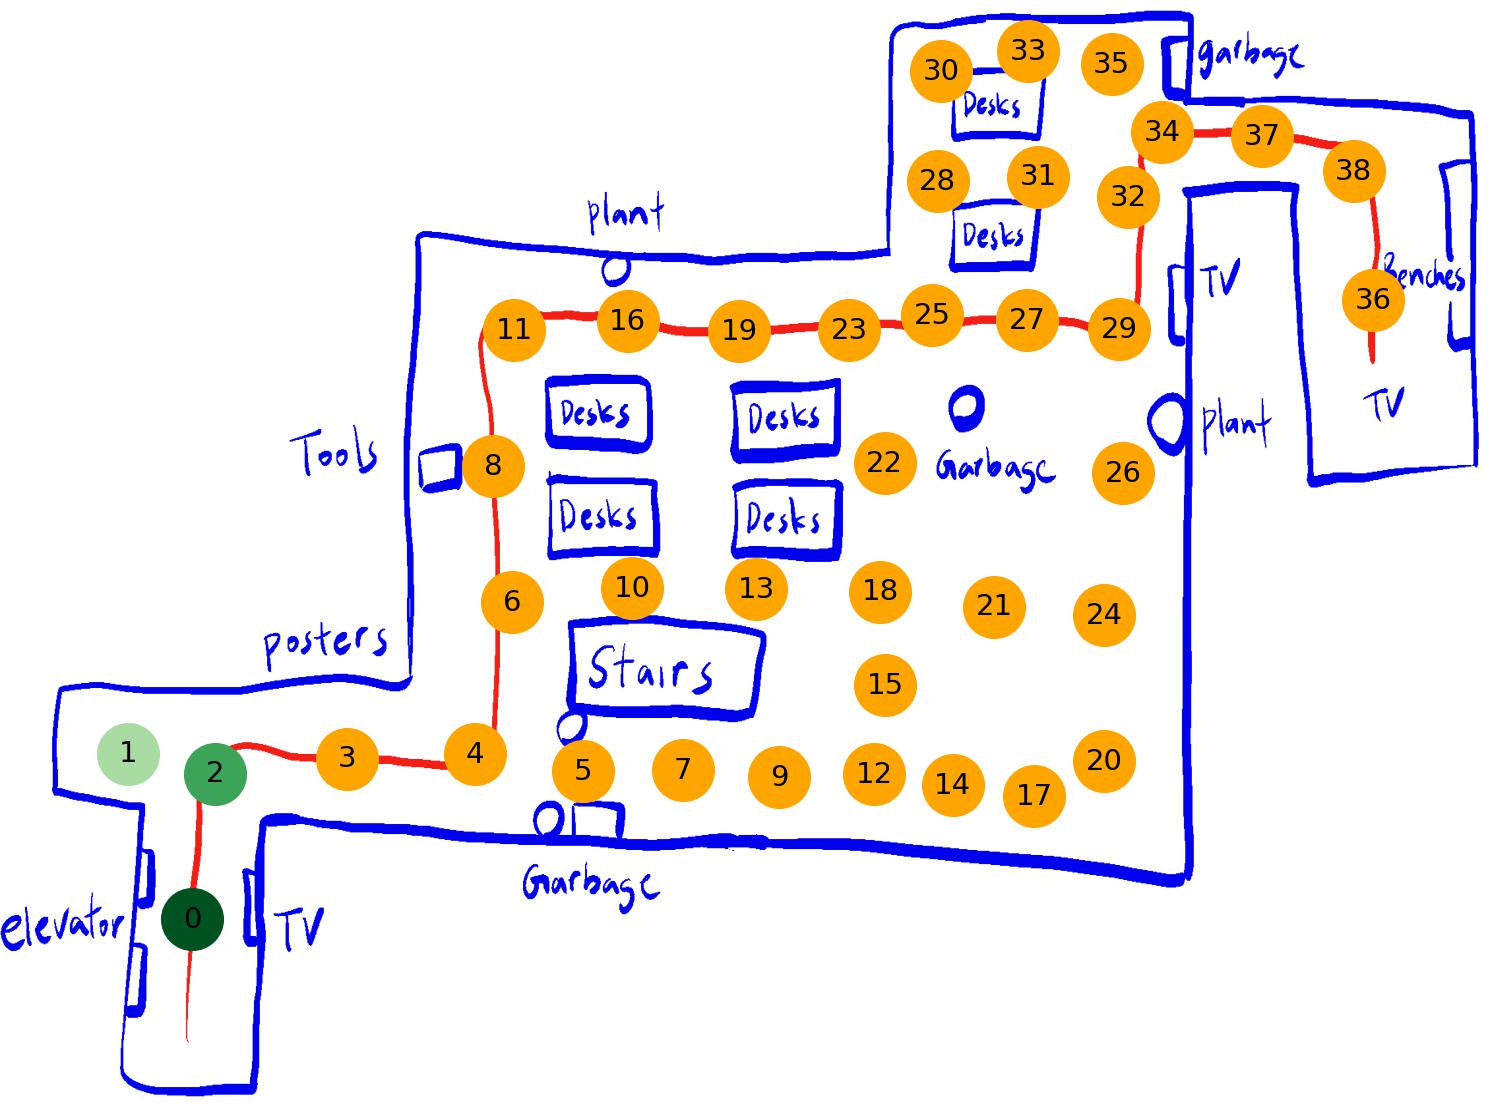 30
33
35
garbage
Desks
34
37
38
28
31
32
plant
Desks
TV
Benches
36
11
16
19
23
25
27
29
TV
Desks
Desks
plant
Tools
8
22
Garbage
26
Desks
Desks
6
10
13
18
21
24
posters
Stairs
15
1
2
3
4
5
7
9
12
14
17
20
Garbage
elevator
0
TV